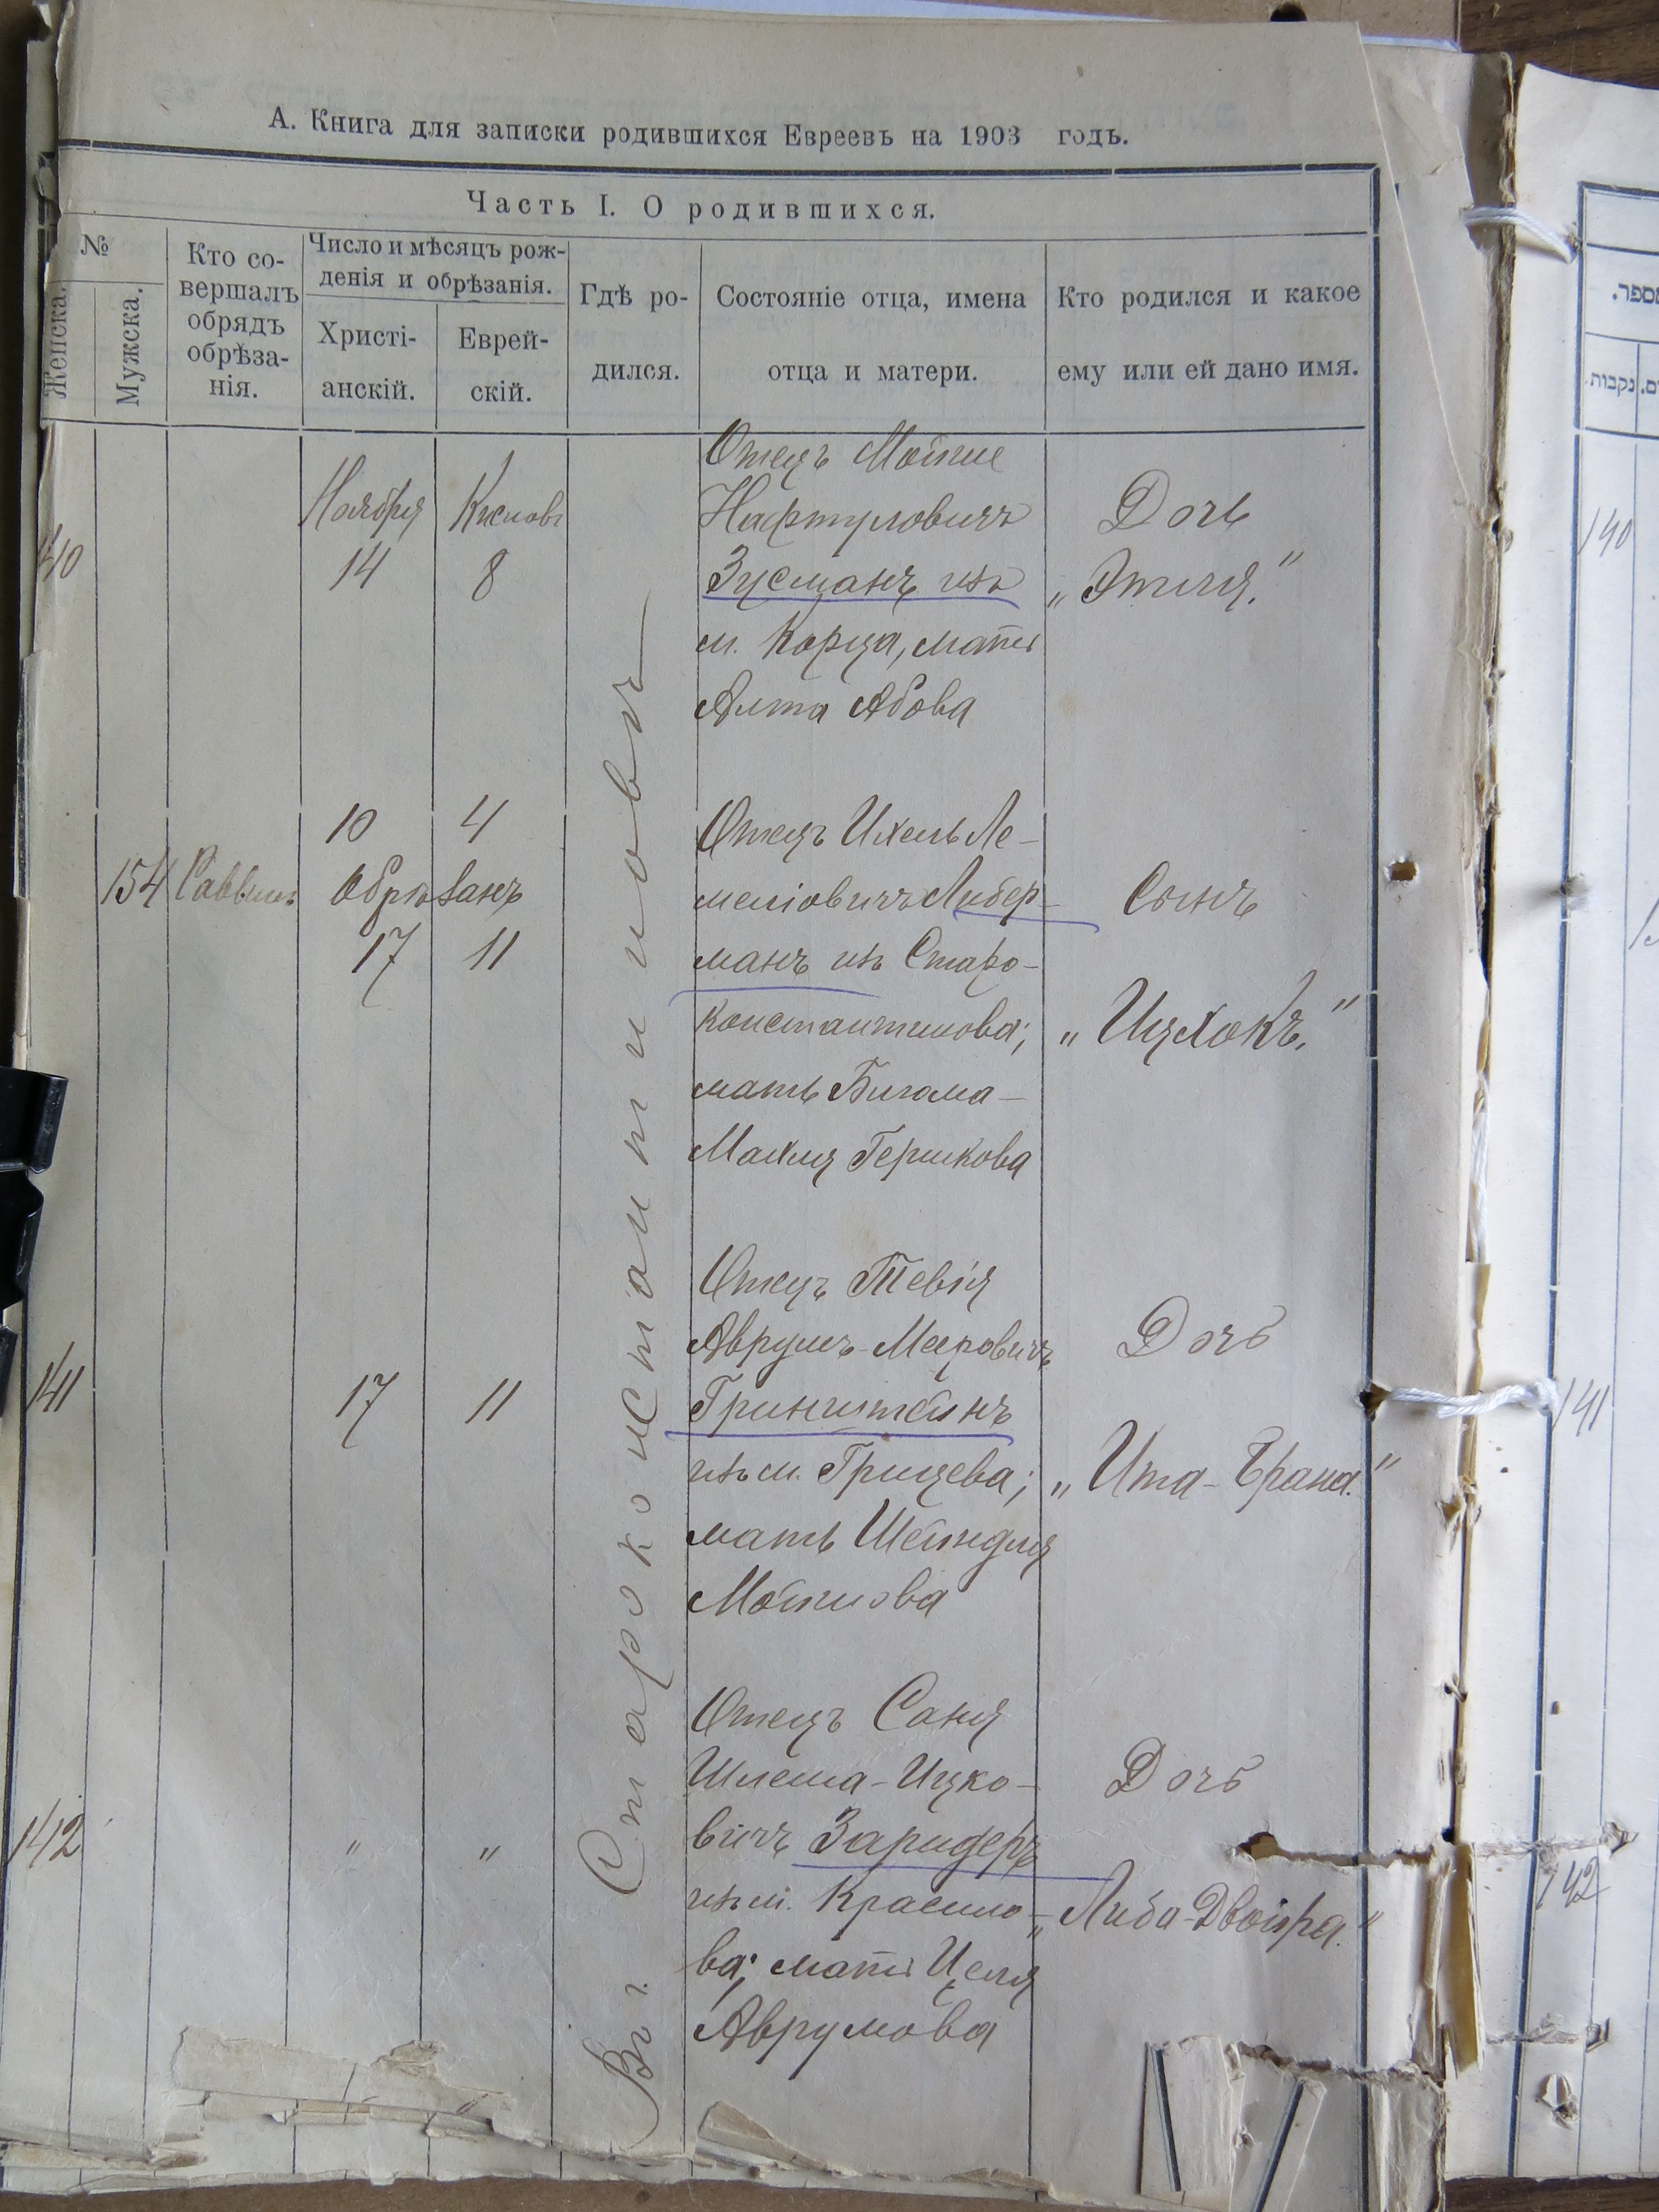 А. Книга для записки родившихся Евреевъ на 1903 годъ.
Часть I. О родившихся.
№
Женска.
Мужска.
Кто со-
вершалъ
обрядъ
обрѣза-
нія.
Число и мѣсяцъ рож-
денія и обрѣзанія.
Христі-
анскій.
Еврей-
скій.
Гдѣ ро-
дился.
Состояніе отца, имена
отца и матери.
Кто родился и какое
ему или ей дано имя.
Въ г. Староконстантиновъ
140
Ноября
14
Кислов
8
Отецъ Мойше
Нафтуловичъ
Зусманъ изъ
м. Корца, мать
Алта Абова
Дочь
„Этля."
154
Раввинъ
10
4
Обрѣзанъ
17
11
Отецъ Ихель Ле-
меліовичъ Либер-
манъ изъ Старо-
константинова;
мать
Махля Гершкова
Сынъ
„Ицхокъ."
141
17
11
Отецъ Тевія
Аврумъ-Мееровичъ
Гринштейнъ
изъ м. Грицева;
мать Шейндля
Мошкова
Дочь
„Ита-Брана."
142
"
"
Отецъ Саня
Шлема-Ицко-
вичъ Заридеръ
изъ м. Красило-
ва; мать Целя
Аврумова
Дочь
„Либа-Двойра."
מספר.
נקבות
140
141
142